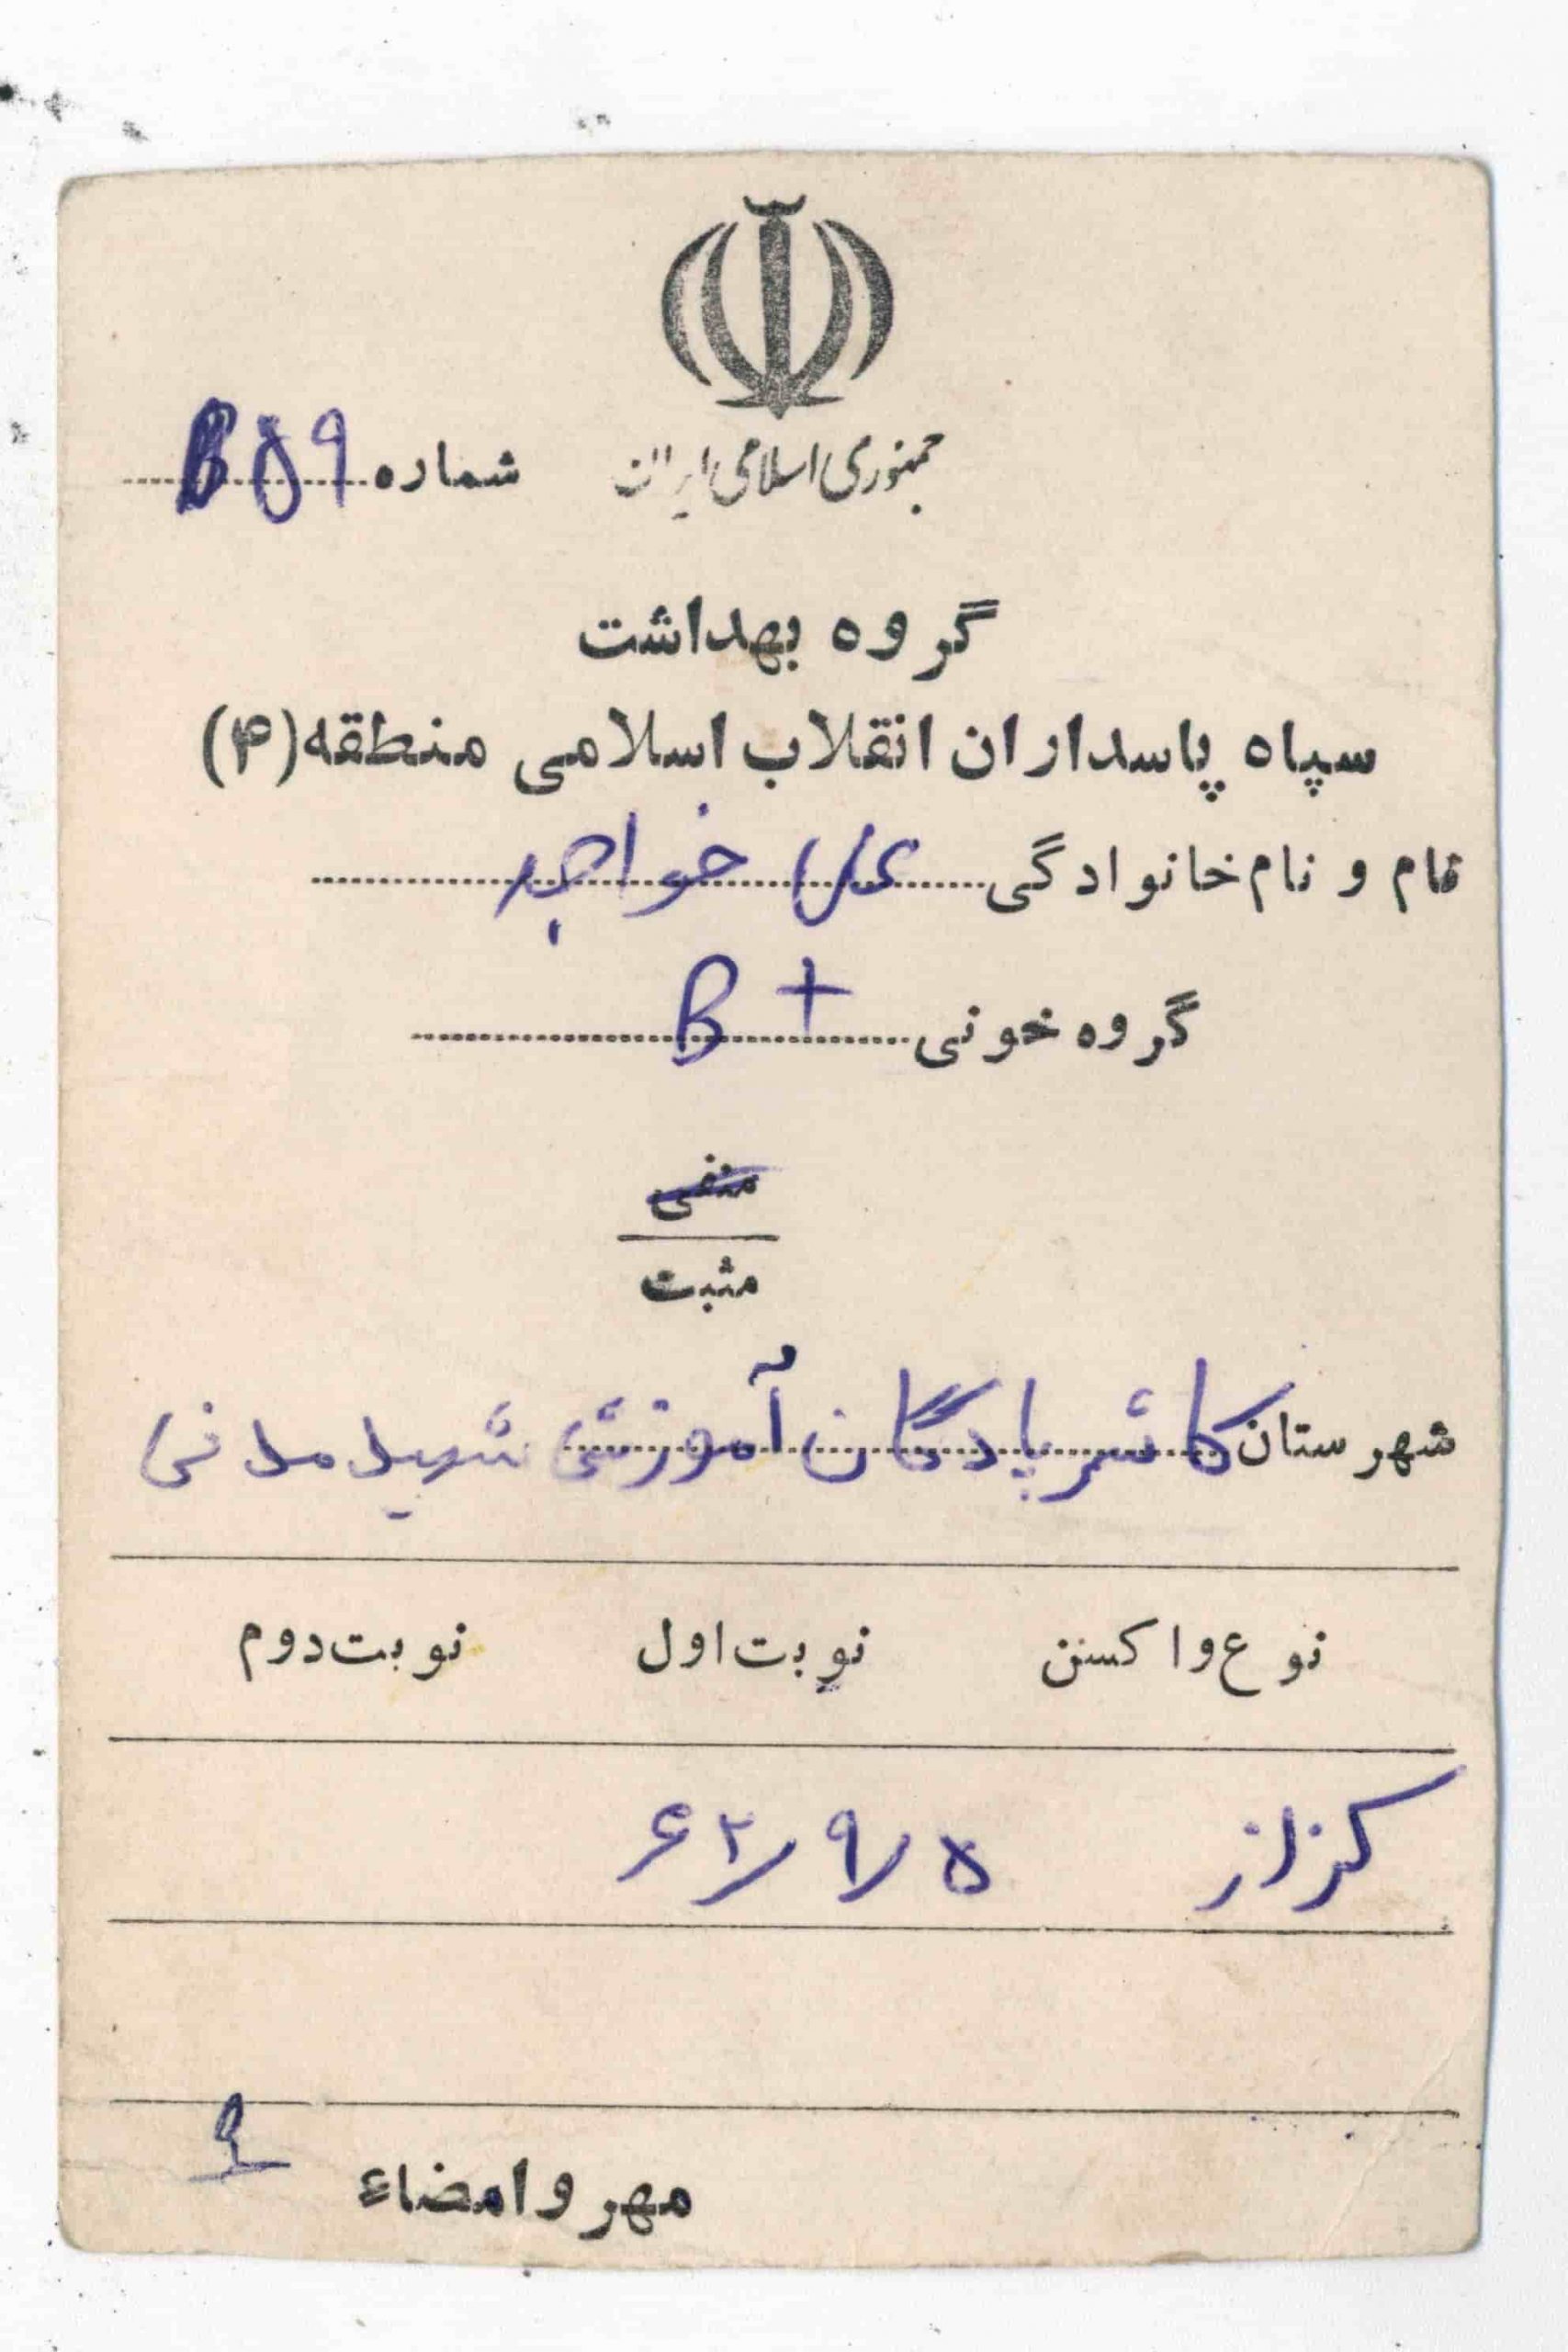 جمهوری اسلامی ایران
شماره B ۵۹
گروه بهداشت
سپاه پاسداران انقلاب اسلامی منطقه (۴)
نام و نام خانوادگی علی خواجه
گروه خونی B +
منفی
مثبت
شهرستان کاشمر پادگان آموزشی شهید مدنی
نوع واکسن نوبت اول نوبت دوم
کزاز ۶۲/۹/۵
مهر و امضاء